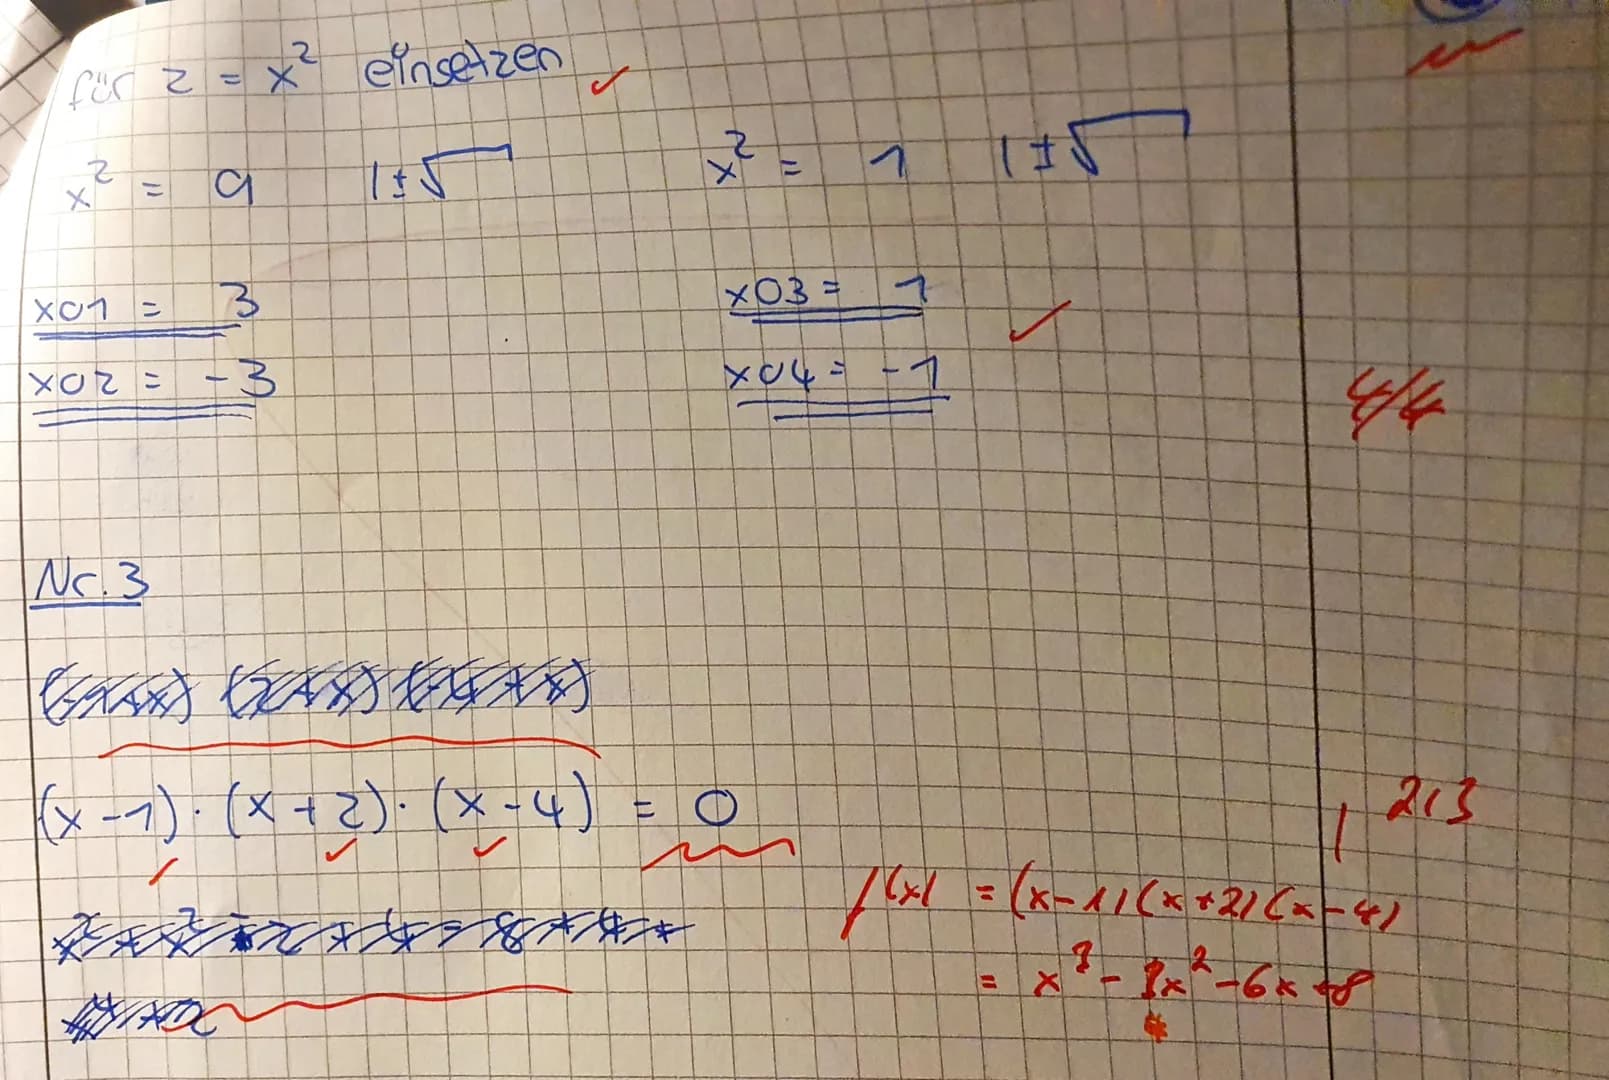 für z = x² einsetzen ✓
x² = 9 |±√ x² = 1 |±√
x01 = 3 x03 = 1 ✓
x02 = -3 x04 = -1
4/4
Nr. 3
(x-1)·(x+2)·(x-4) = 0
f(x) = (x-1)(x+2)(x-4)
= x³ - 3x² - 6x + 8